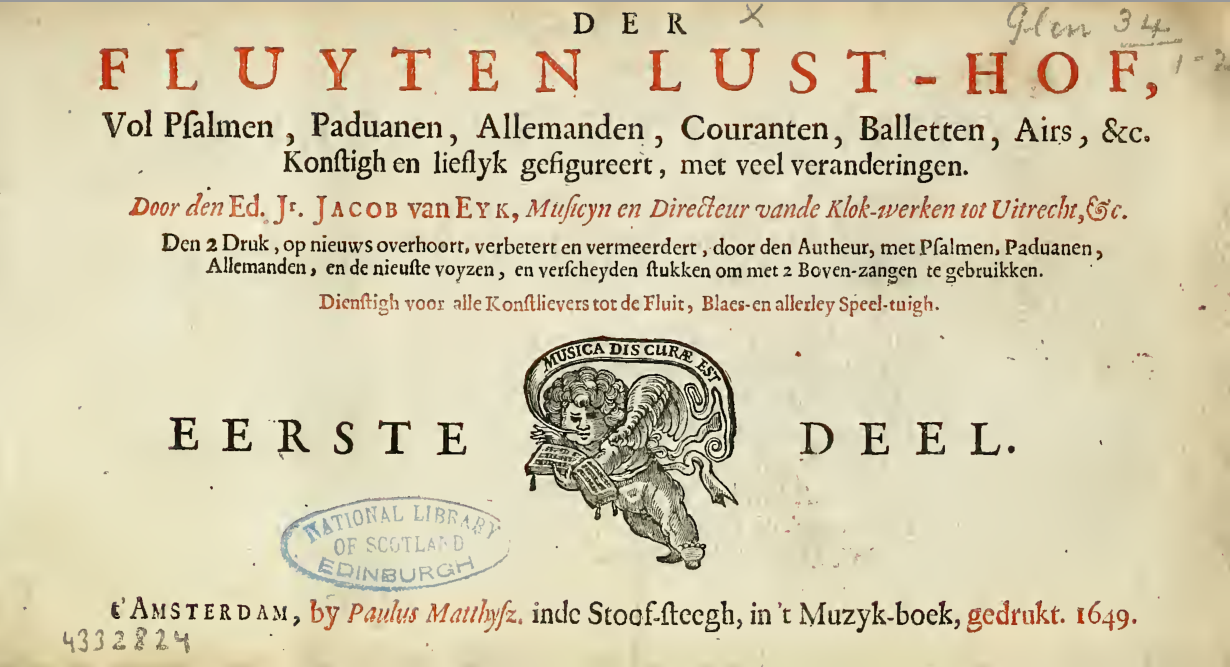 DER
X
Glen 34
FLUYTEN LUST-HOF,
Vol Pſalmen, Paduanen, Allemanden, Couranten, Balletten, Airs, &c.
Konſtigh en lieflyk gefigureert, met veel veranderingen.
Door den Ed. Jr. JACOB van EYK, Muſicyn en Directeur vande Klok-werken tot Uitrecht, &c.
Den 2 Druk, op nieuws overhoort, verbetert en vermeerdert, door den Autheur, met Pſalmen, Paduanen,
Allemanden, en de nieuſte voyzen, en verſcheyden ſtukken om met 2 Boven-zangen te gebruikken.
Dienſtigh voor alle Konſtlievers tot de Fluit, Blaes-en allerley Speel-tuigh.
MUSICA DIS CURÆ EST
EERSTE DEEL.
NATIONAL LIBRARY
OF SCOTLAND
EDINBURGH
t'AMSTERDAM, by Paulus Matthyſz. inde Stoof-ſteegh, in 't Muzyk-boek, gedrukt. 1649.
4332824